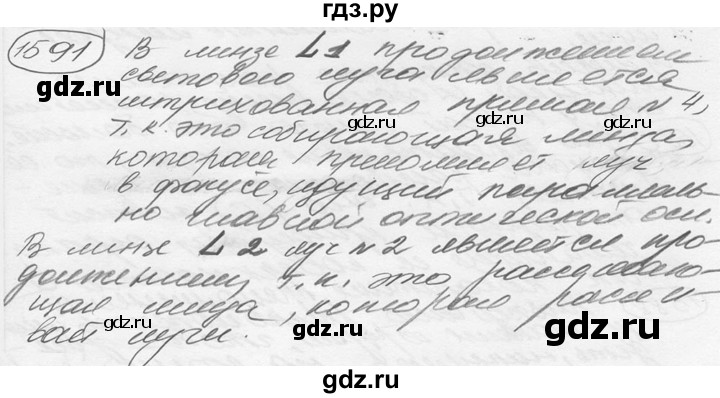 гдз.ру
1591 В линзе L1 продолжением
светового луча является
штрихованная прямая №4,
т.к. это собирающая линза,
которая преломляет луч
в фокусе, идущий параллель-
но главной оптической оси.
В линзе L2 луч №2 является про-
должением т.к. это рассеиваю-
щая линза, которая рассеи-
вает лучи.
gdz.ru
gdz.ru
gdz.ru
gdz.ru
gdz.ru
gdz.ru
gdz.ru
gdz.ru
gdz.ru